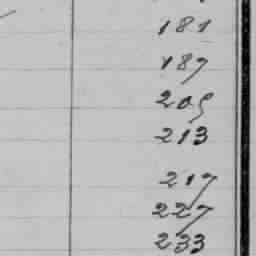 181
187
209
213
217
227
233